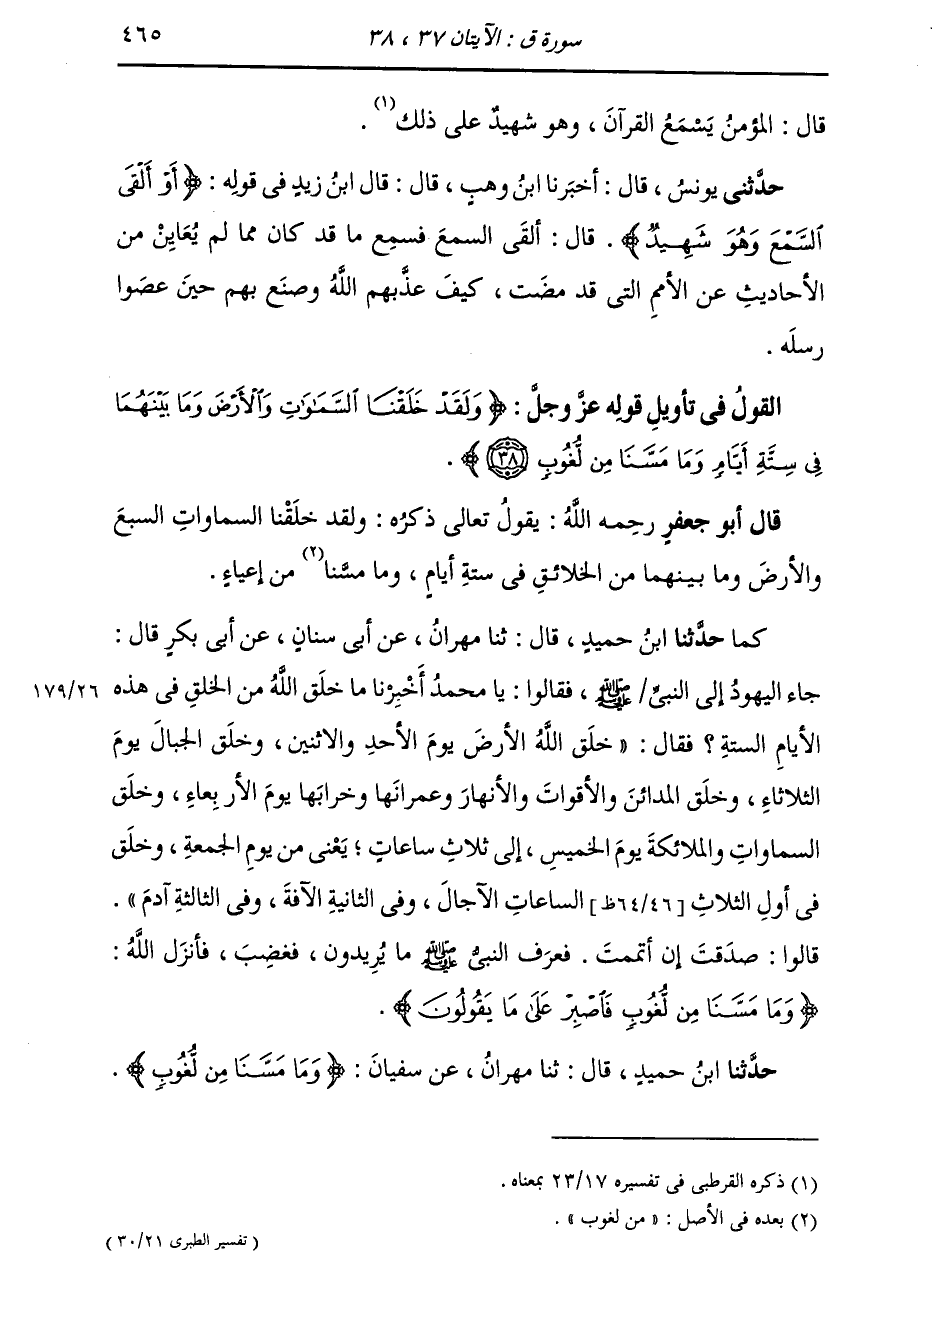 سورة ق : الآيتان ٣٧ ، ٣٨
٤٦٥
قال : المؤمنُ يَسْمَعُ القرآنَ ، وهو شهيدٌ على ذلك(١) .
حدَّثنى يونسُ ، قال : أخبَرنا ابنُ وهبٍ ، قال : قال ابنُ زيدٍ فى قولِه : ﴿ أَوْ أَلْقَى
ٱلسَّمْعَ وَهُوَ شَهِيدٌ ﴾ . قال : ألقَى السمعَ فسمِع ما قد كان مما لم يُعَاينْ من
الأحاديثِ عن الأممِ التى قد مضَت ، كيفَ عذَّبهم اللَّهُ وصنَع بهم حينَ عصَوا
رسلَه .
القولُ فى تأويلِ قولِه عزَّ وجلَّ : ﴿ وَلَقَدْ خَلَقْنَا ٱلسَّمَٰوَٰتِ وَٱلْأَرْضَ وَمَا بَيْنَهُمَا
فِى سِتَّةِ أَيَّامٍ وَمَا مَسَّنَا مِن لُّغُوبٍ ٣٨ ﴾ .
قال أبو جعفرٍ رحِمه اللَّهُ : يقولُ تعالى ذكرُه : ولقد خلَقْنا السماواتِ السبعَ
والأرضَ وما بينهما من الخلائقِ فى ستةِ أيامٍ ، وما مسَّنا(٢) من إعياءٍ .
كما حدَّثنا ابنُ حميدٍ ، قال : ثنا مهرانُ ، عن أبى سنانٍ ، عن أبى بكرٍ قال :
جاء اليهودُ إلى النبىِّ/ ﷺ ، فقالوا : يا محمدُ أَخْبِرْنا ما خلَق اللَّهُ من الخلقِ فى هذه ١٧٩/٢٦
الأيامِ الستةِ ؟ فقال : « خلَق اللَّهُ الأرضَ يومَ الأحدِ والاثنين ، وخلَق الجبالَ يومَ
الثلاثاءِ ، وخلَق المدائنَ والأقواتَ والأنهارَ وعمرانَها وخرابَها يومَ الأربعاءِ ، وخلَق
السماواتِ والملائكةَ يومَ الخميسِ ، إلى ثلاثِ ساعاتٍ ؛ يَعْنى من يومِ الجمعةِ ، وخلَق
فى أولِ الثلاثِ [٦٤/٤٦ظ] الساعاتِ الآجالَ ، وفى الثانيةِ الآفةَ ، وفى الثالثةِ آدمَ » .
قالوا : صدَقتَ إن أتممتَ . فعرَف النبىُّ ﷺ ما يُرِيدون ، فغضِبَ ، فأنزَل اللَّهُ :
﴿ وَمَا مَسَّنَا مِن لُّغُوبٍ فَٱصْبِرْ عَلَىٰ مَا يَقُولُونَ ﴾ .
حدَّثنا ابنُ حميدٍ ، قال : ثنا مهرانُ ، عن سفيانَ : ﴿ وَمَا مَسَّنَا مِن لُّغُوبٍ ﴾ .
(١) ذكره القرطبى فى تفسيره ٢٣/١٧ بمعناه .
(٢) بعده فى الأصل : « من لغوب » .
( تفسير الطبرى ٣٠/٢١ )